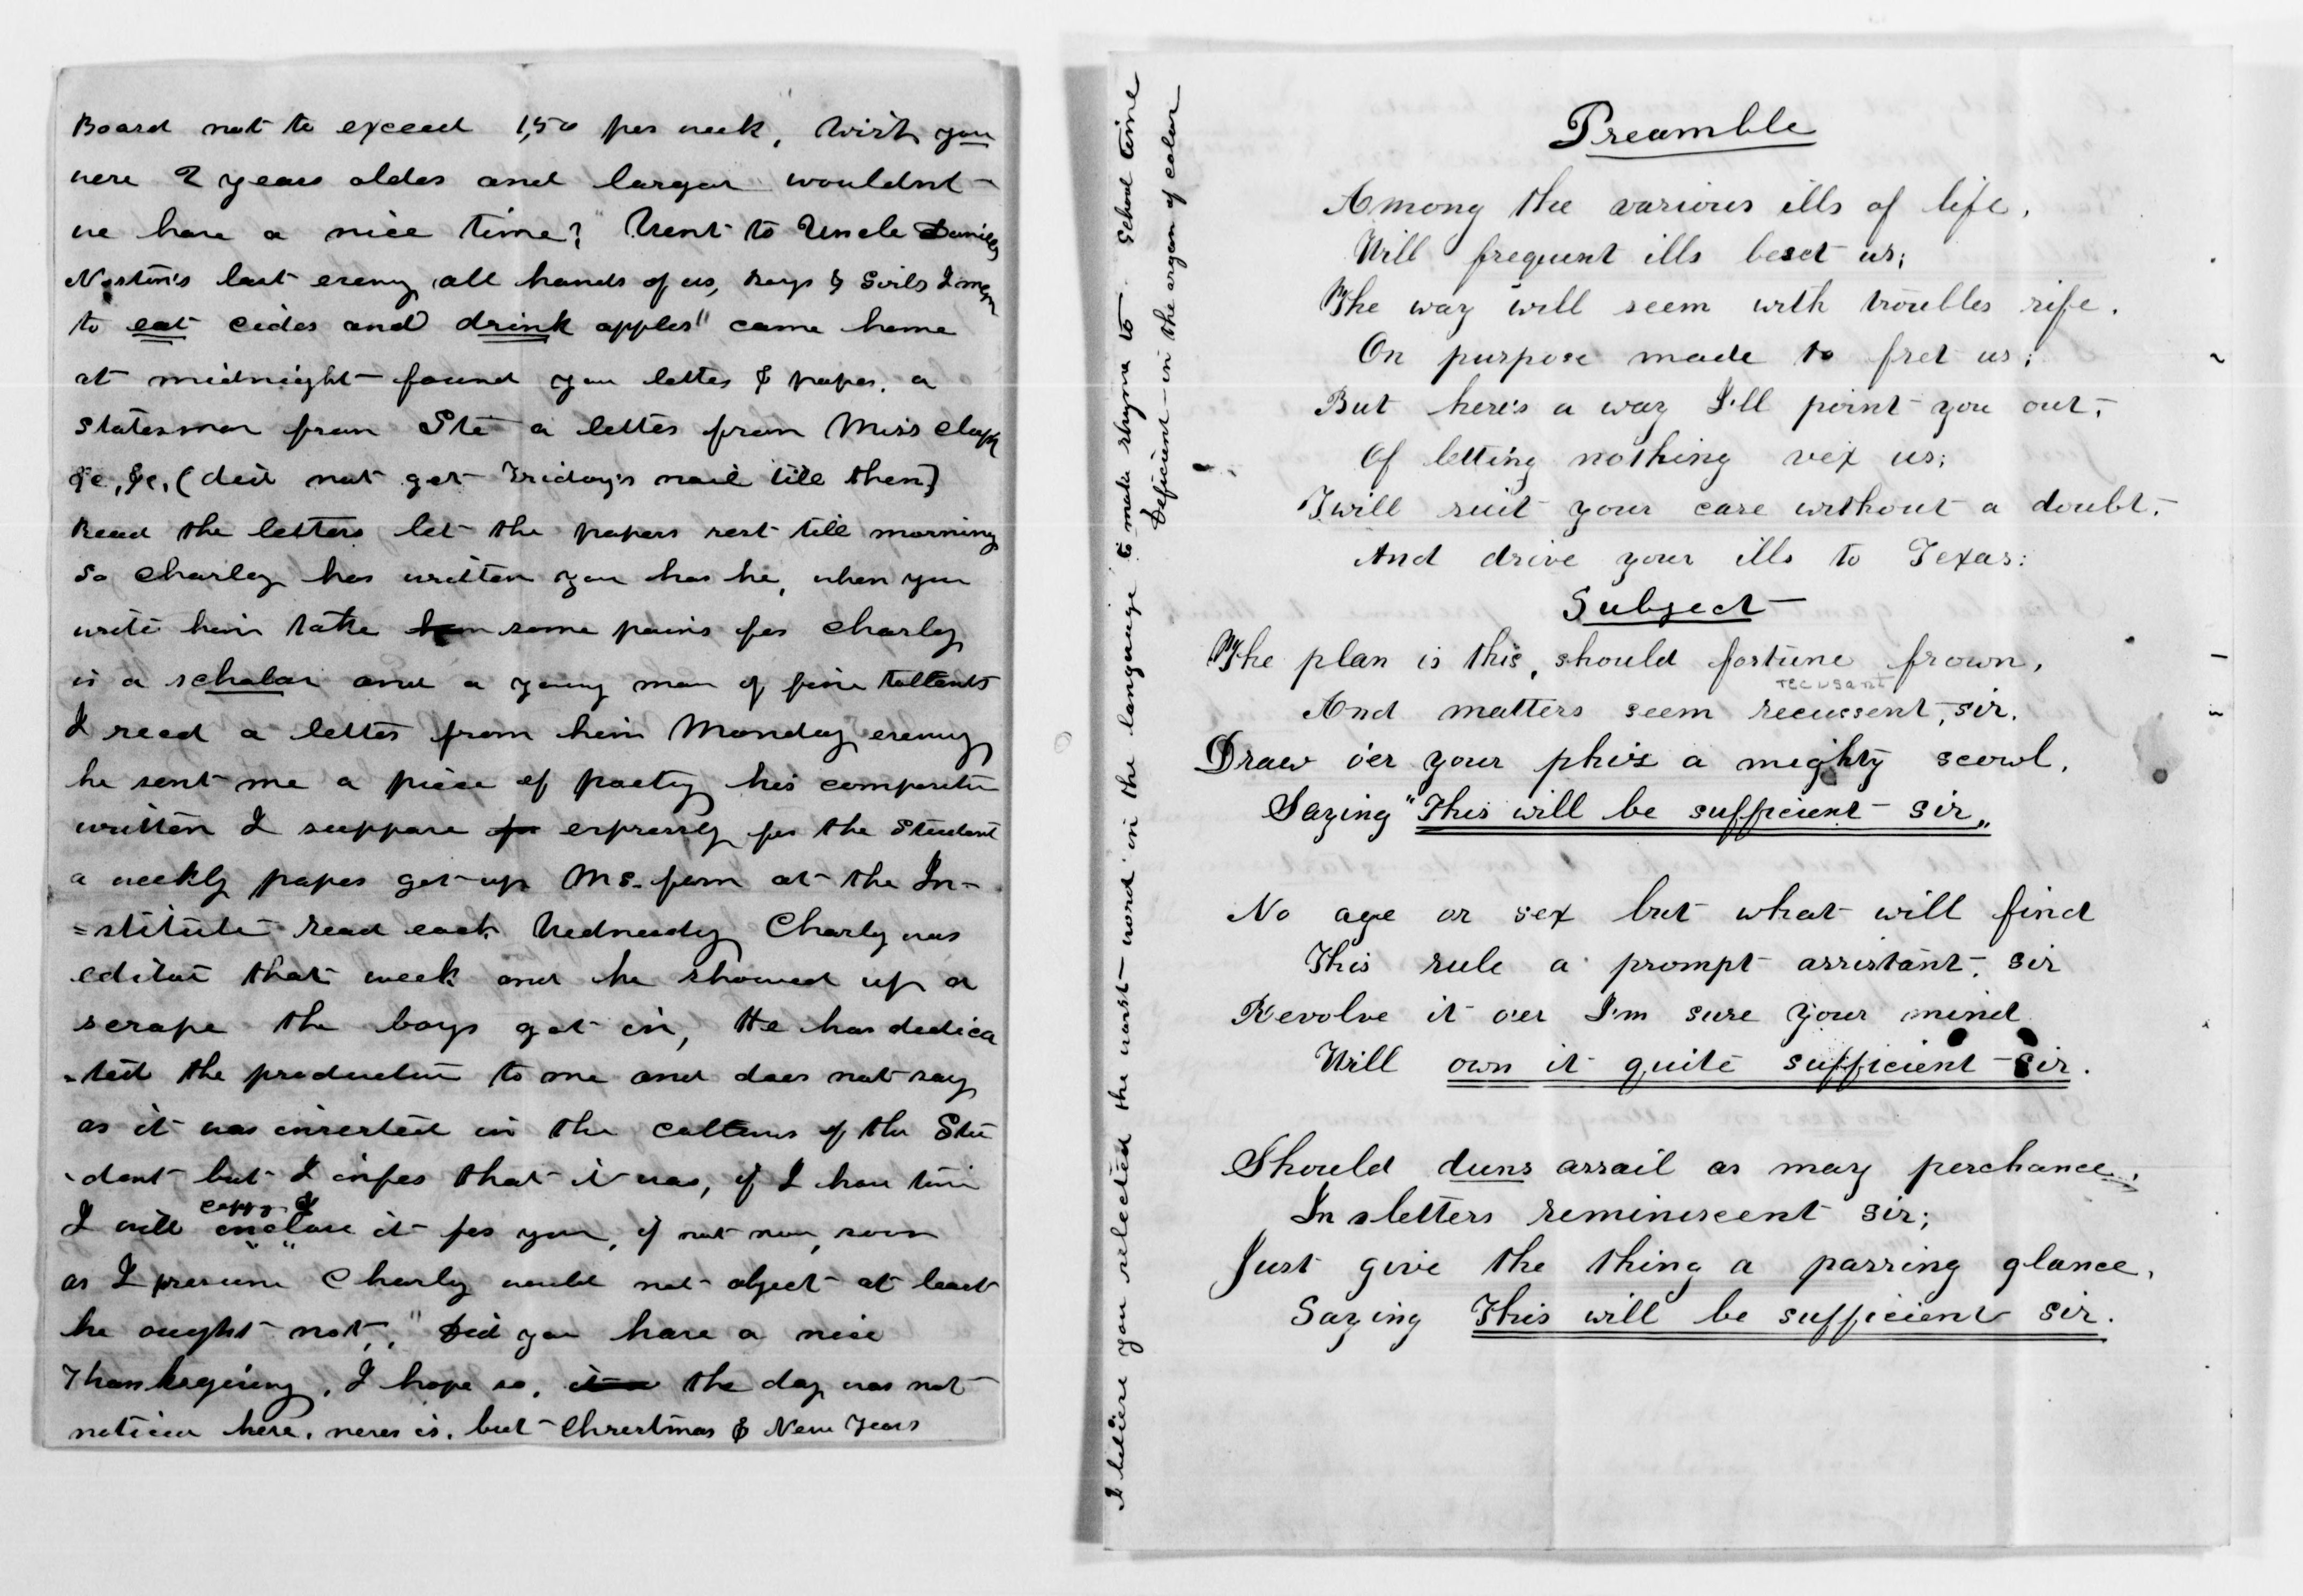 Board not to exceed 1,50 per week, Wish you
were 2 years older and larger wouldnt
we have a nice time? Went to Uncle Daniel
Norton's last eveng all hands of us, boys & Girls I mean
to eat cider and drink apples" came home
at midnight found you letter & paper. a
statesman from Ste a letter from Miss Clapp
&c, &c, (did not get Friday's mail till then)
Read the letters let the papers rest till morning
So Charley has written you has he, when you
write him take him some pains for Charley
is a scholar and a young man of fine tallents
I read a letter from him Monday eveng
he sent me a piece of poetry his compositn
written I suppose for expressly for the Student
a weekly paper got up Ms. form at the In-
=stitute read each Wednesday Charly was
editor that week and he showed up a
scrape the boys got in, He has dedica
-ted the production to me and does not say
as it was inserted in the collums of the Stu
-dent but I infer that it was, if I have time
copy &
I will enclose it for you, if not now, soon
as I presume Charly would not object at least
he ought not," Did you have a nice
Thanksgiving, I hope so, it was the day was not
noticed here. never is. but Christmas & New Years
I believe you selected the worst word in the language to make rhyme to. School time
Deficient in the organ of color
Preamble
Among the various ills of life,
Will frequent ills beset us;
The way will seem with troubles rife.
On purpose made to fret us;
But here's a way I'll point you out,
Of letting nothing vex us;
T'will suit your case without a doubt,
And drive your ills to Texas:
Subject
The plan is this, should fortune frown,
recusant
And matters seem recussent, sir.
Draw o'er your phiz a mighty scowl,
Saying "This will be sufficient sir"
No age or sex but what will find
This rule a prompt assistant, sir
Revolve it o'er I'm sure your mind
Will own it quite sufficient sir.
Should duns assail as may perchance,
In letters reminiscent sir;
Just give the thing a passing glance,
Saying This will be sufficient sir.